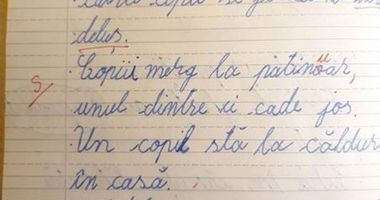 deluș.
Copiii merg la patinuar,
unul dintre ei cade jos.
Un copil stă la căldur
în casă.